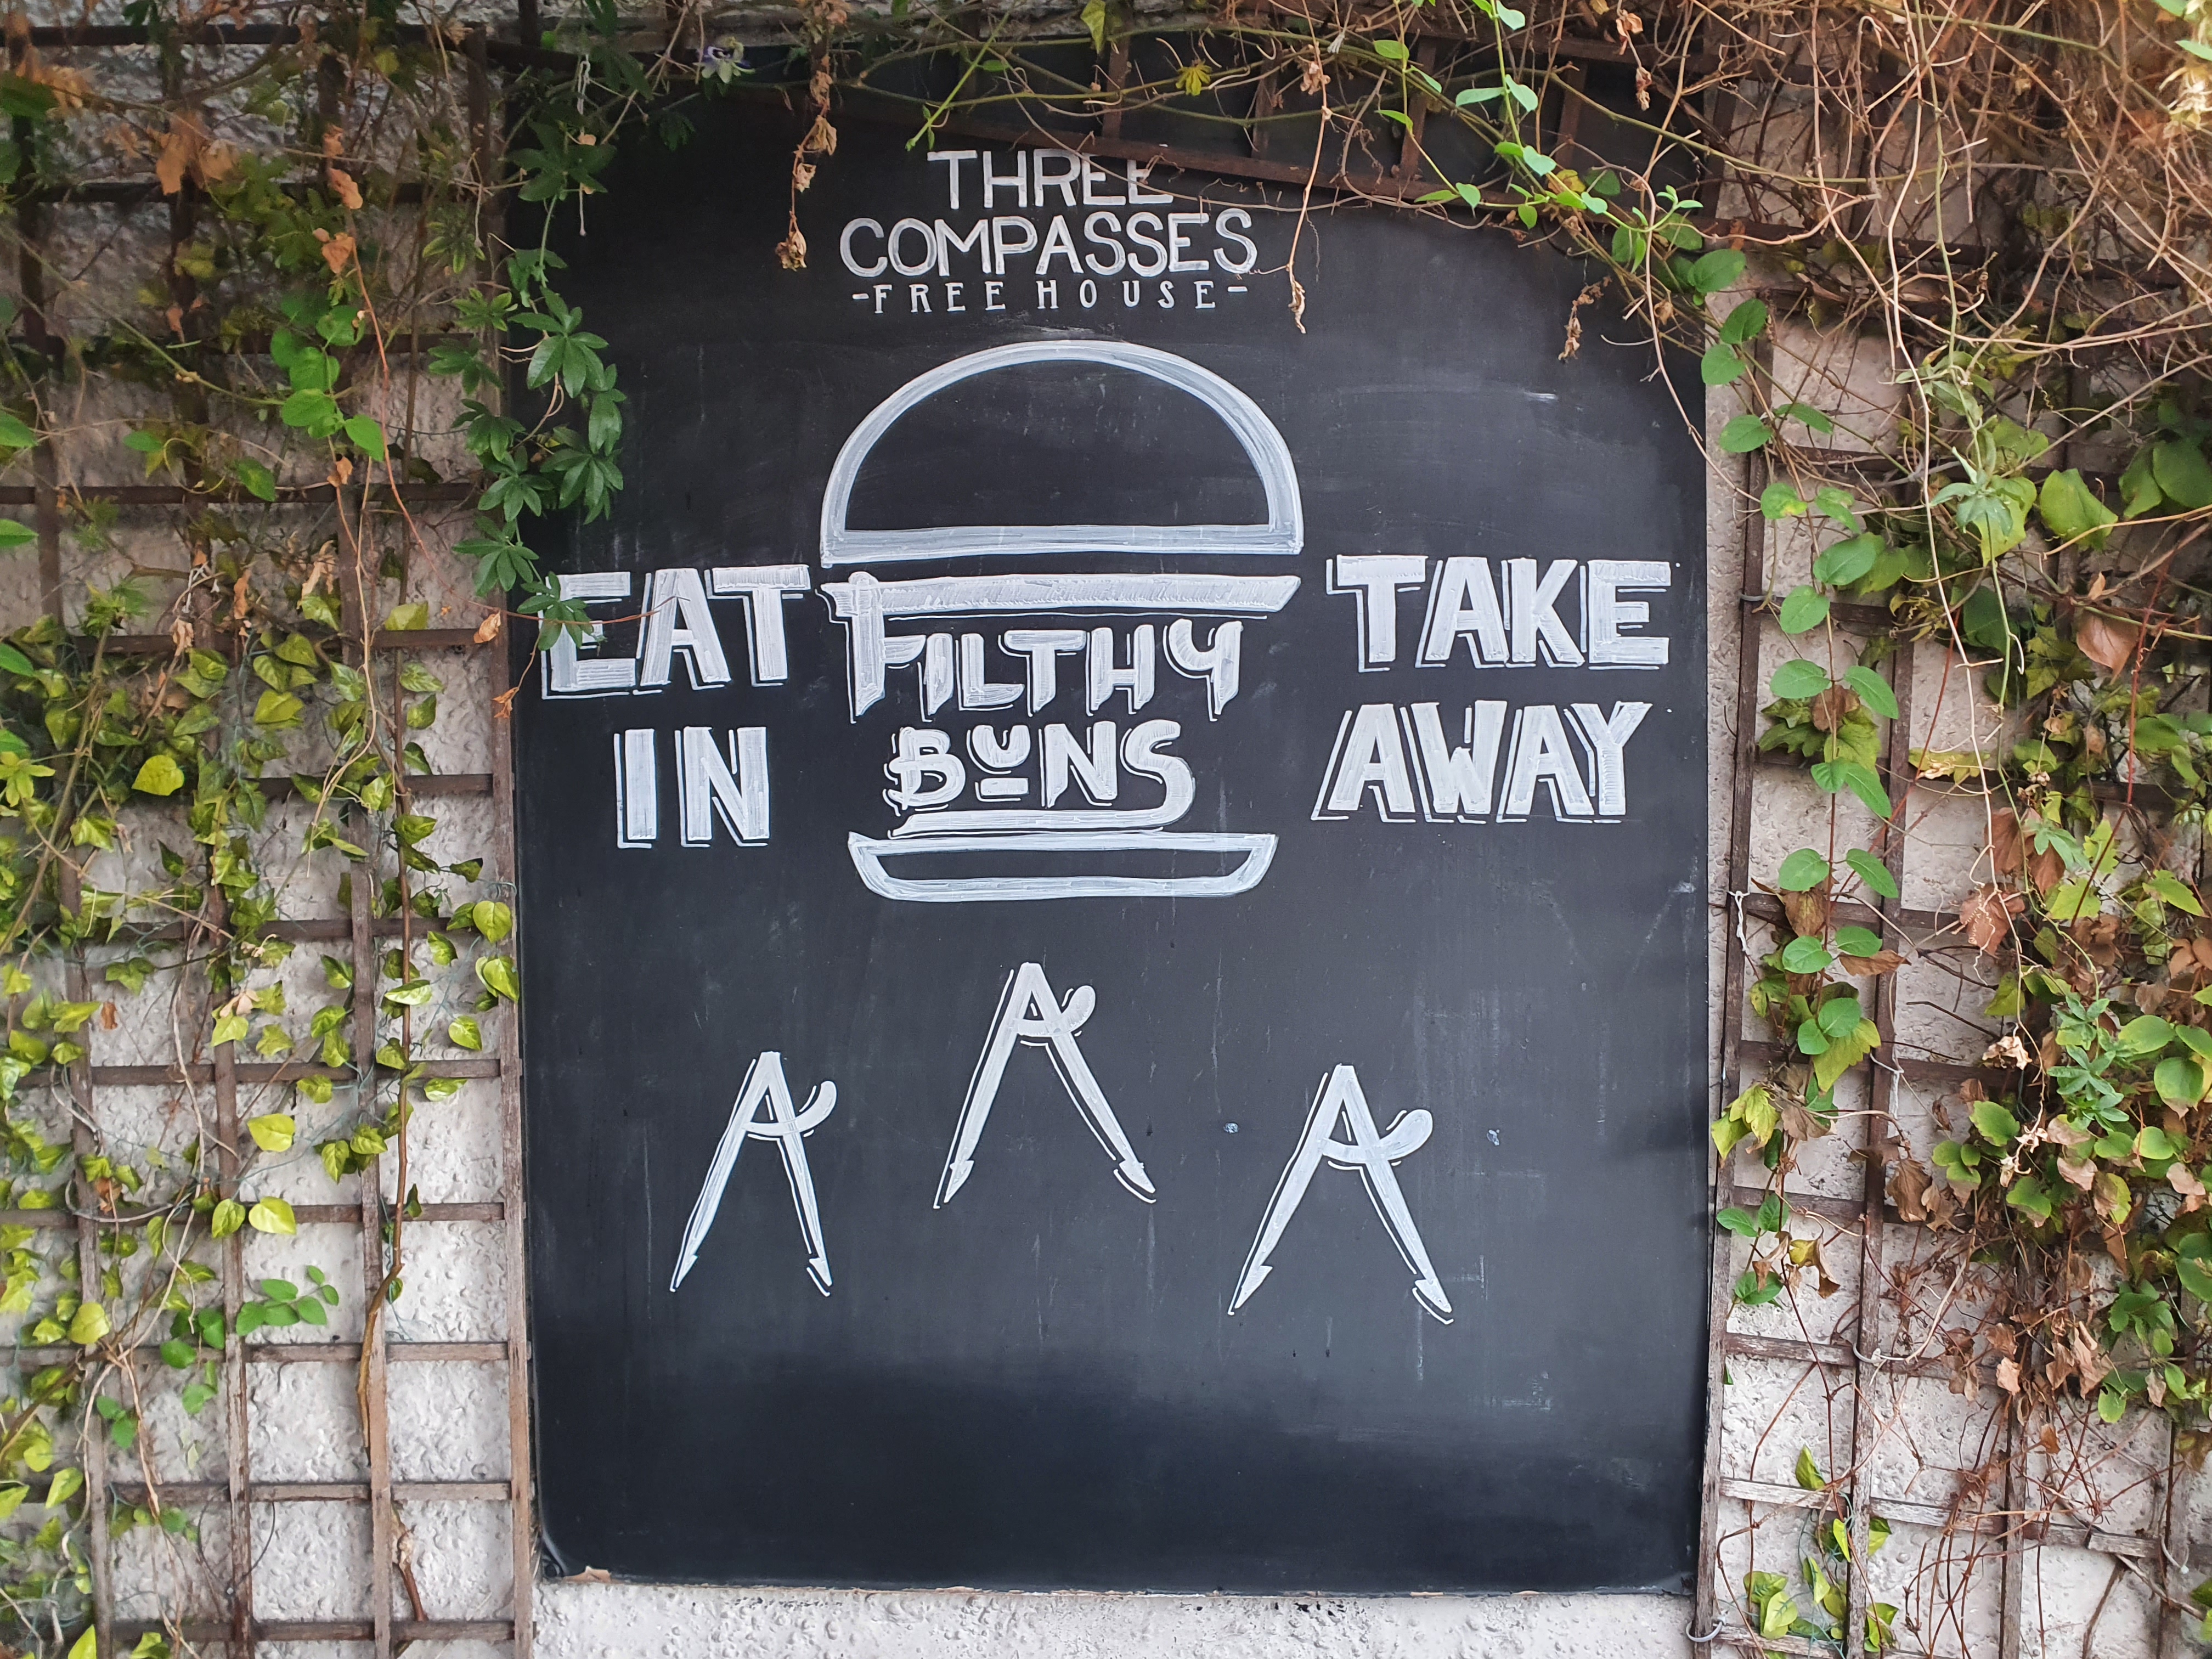 THREE
COMPASSES
-FREE HOUSE-
EAT
IN
FILTHY
BUNS
TAKE
AWAY